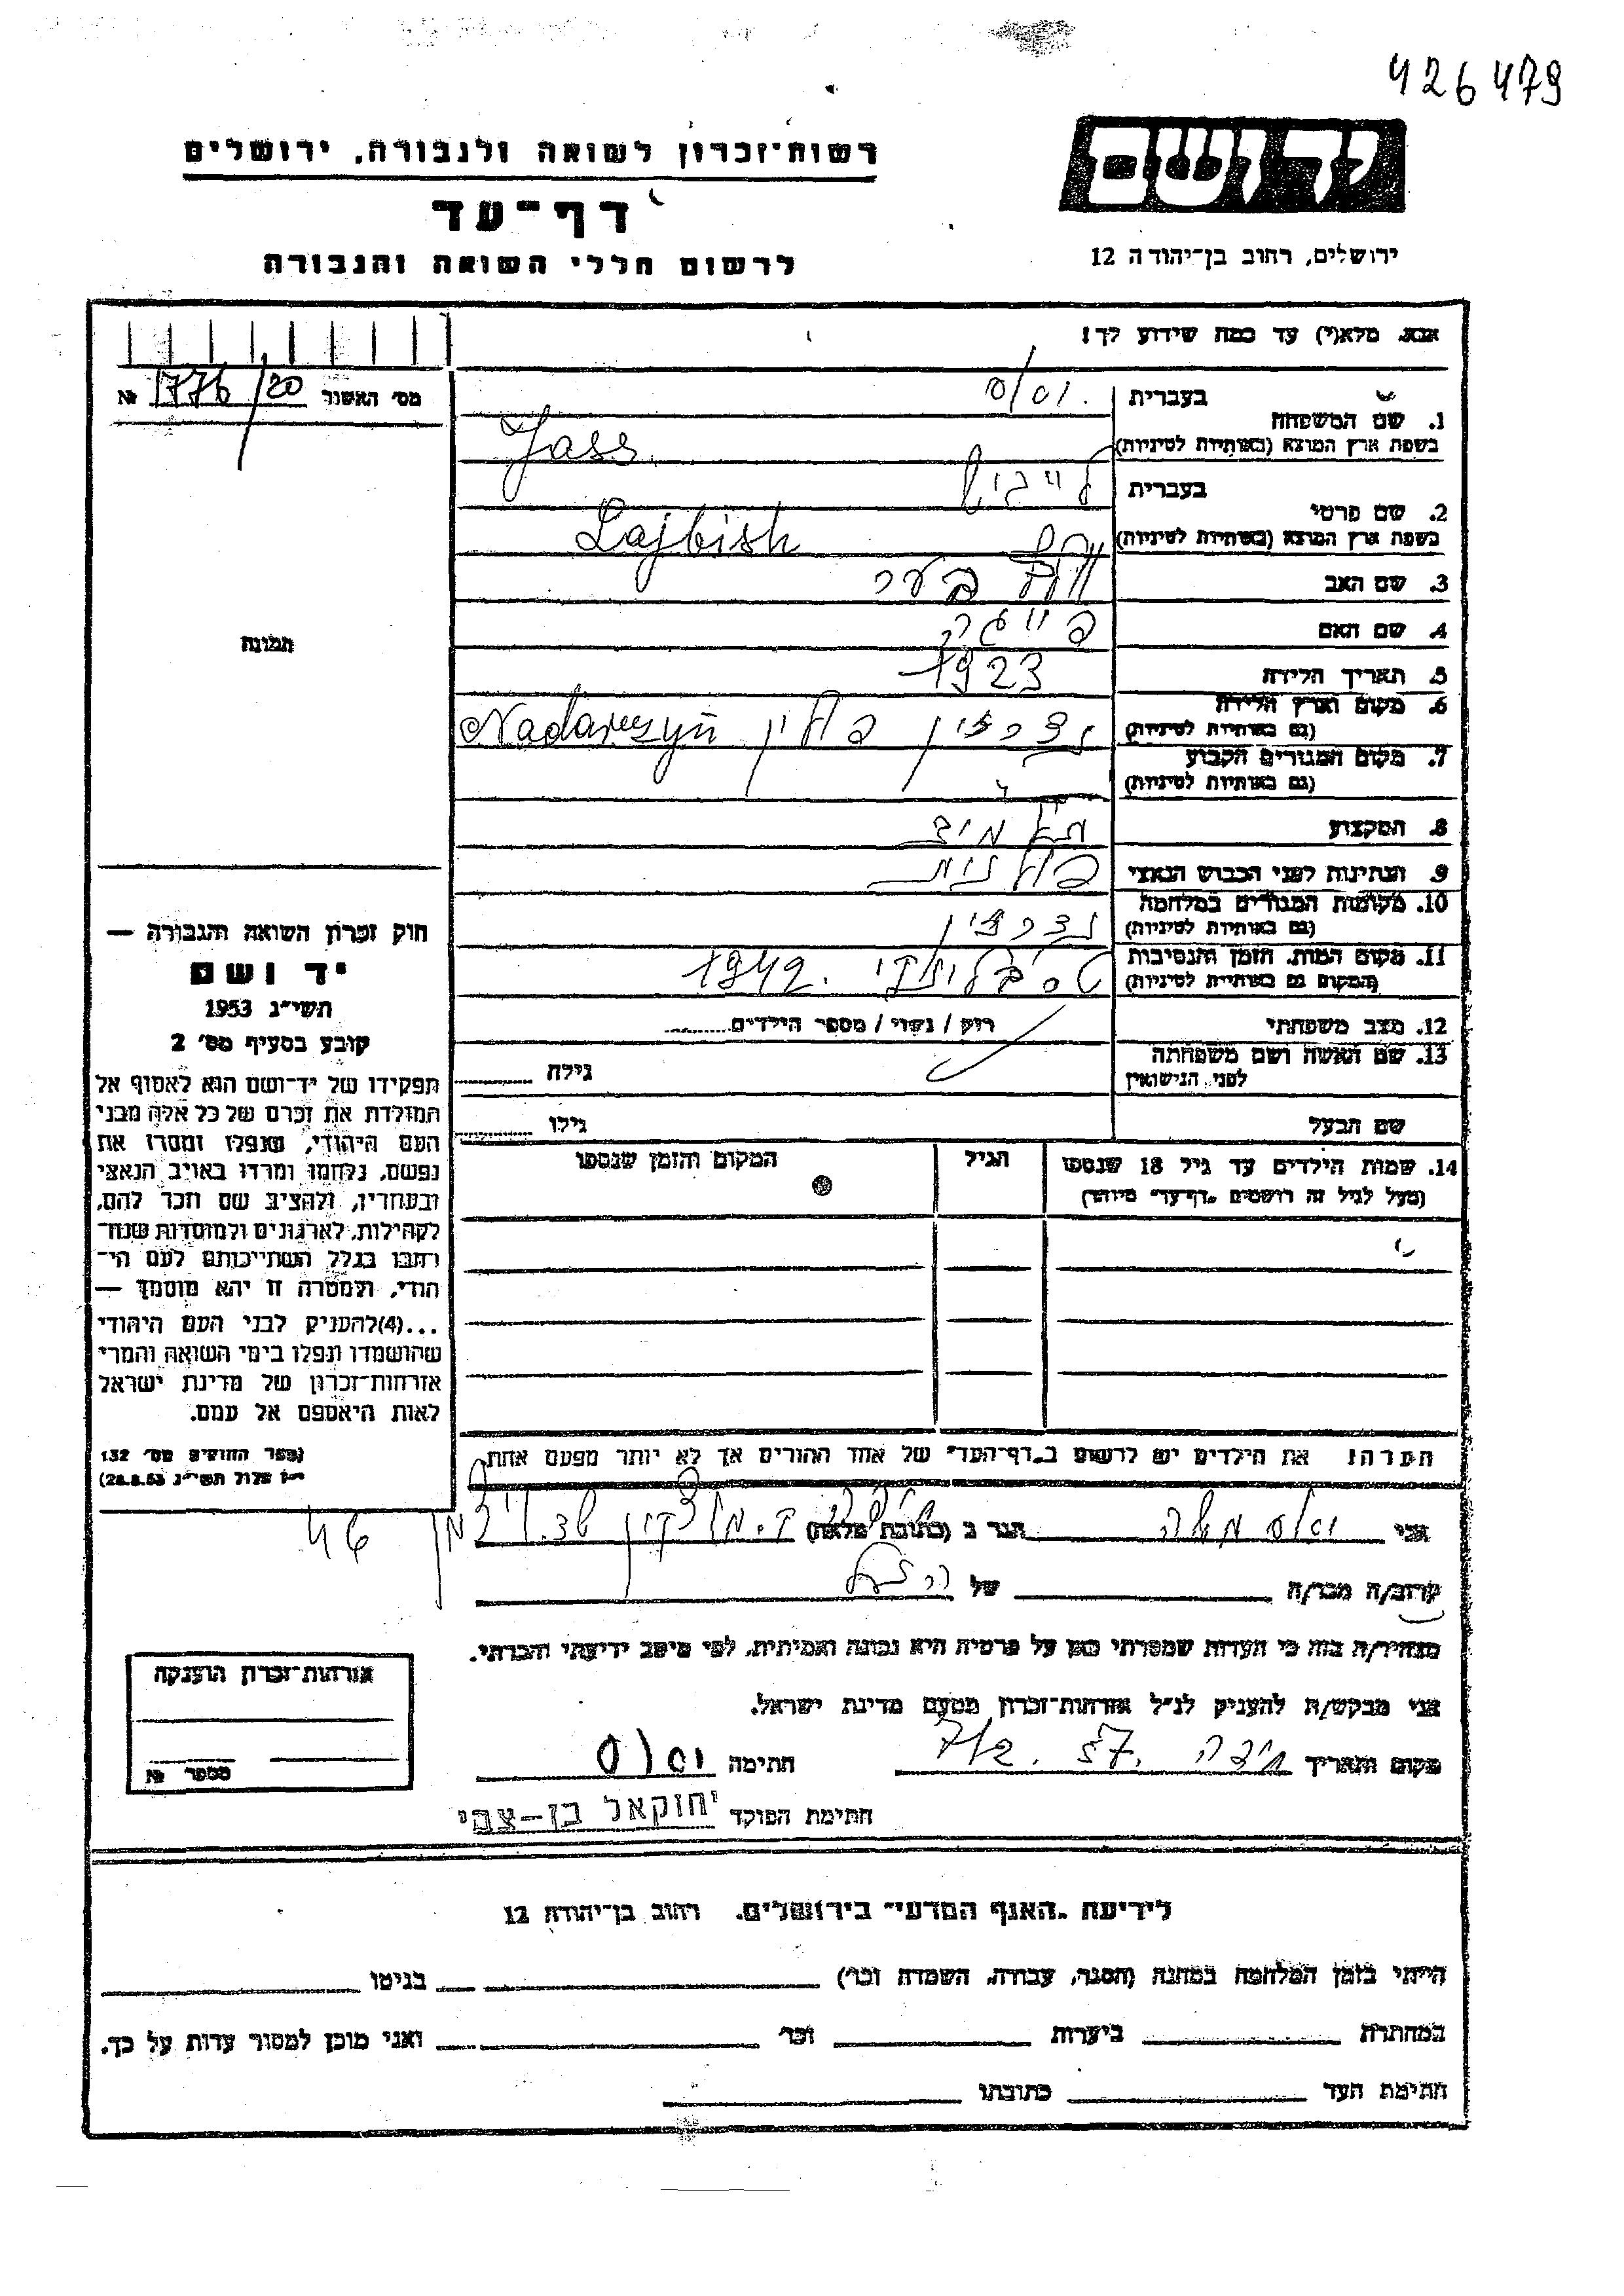 426479
רשות־זכרון לשואה ולגבורה, ירושלים
יד ושם
דף־עד
לרשום חללי השואה והגבורה
ירושלים, רחוב בן־יהודה 12
אנא, מלא(י) עד כמה שידוע לך!
מס׳ האשור 1776/20 №
1. שם המשפחה
בעברית
בשפת ארץ המוצא (באותיות לטיניות) Jass
2. שם פרטי
בעברית לייביש
בשפת ארץ המוצא (באותיות לטיניות) Lajbish
3. שם האב בער
4. שם האם
5. תאריך הלידה 1923
6. מקום וארץ הלידה
(גם באותיות לטיניות) נדרזין פולין Nadarzyn
7. מקום המגורים הקבוע
(גם באותיות לטיניות)
8. המקצוע תלמיד
9. הנתינות לפני הכבוש הנאצי פולנית
10. מקומות המגורים במלחמה
(גם באותיות לטיניות) נדרזין
11. מקום המות, הזמן והנסיבות
(המקום גם באותיות לטיניות) טרבלינקי 1942.
12. מצב משפחתי רווק / נשוי / מספר הילדים
13. שם האשה ושם משפחתה
לפני הנישואין
גילה
שם הבעל
גילו
14. שמות הילדים עד גיל 18 שנספו
(מעל לגיל זה רושמים „דף־עד״ מיוחד)
הגיל
המקום והזמן שנספו
תמונה
חוק זכרון השואה והגבורה —
יד ושם
תשי״ג 1953
קובע בסעיף מס׳ 2
תפקידו של יד־ושם הוא לאסוף אל
המולדת את זכרם של כל אלה מבני
העם היהודי, שנפלו ומסרו את
נפשם, נלחמו ומרדו באויב הנאצי
ובעוזריו, ולהציב שם וזכר להם,
לקהילות, לארגונים ולמוסדות שנח־
רבו בגלל השתייכותם לעם הי־
הודי, ולמטרה זו יהא מוסמך —
...(4)להעניק לבני העם היהודי
שהושמדו ונפלו בימי השואה והמרי
אזרחות־זכרון של מדינת ישראל
לאות היאספם אל עמם.
(ספר החוקים מס׳ 132
י״ז אלול תשי״ג 28.8.53)
הערה! את הילדים יש לרשום ב„דף־העד״ של אחד ההורים אך לא יותר מפעם אחת.
אני יאס משה הגר ב (כתובת מלאה) חיפה ק. 46
קרוב/ה מכר/ה של
מצהיר/ה בזה כי העדות שמסרתי כאן על פרטיה היא נכונה ואמיתית, לפי מיטב ידיעתי והכרתי.
אני מבקש/ת להעניק לנ״ל אזרחות־זכרון מטעם מדינת ישראל.
מקום ותאריך חיפה 57. חתימה
חתימת הפוקד יחזקאל בן-צבי
אזרחות־זכרון הוענקה
מספר №
לידיעת „האגף המדעי״ בירושלים, רחוב בן־יהודה 12
הייתי בזמן המלחמה במחנה (הסגר, עבודה, השמדה וכו׳) בגיטו
במחתרת ביערות וכו׳ ואני מוכן למסור עדות על כך.
חתימת העד כתובתו